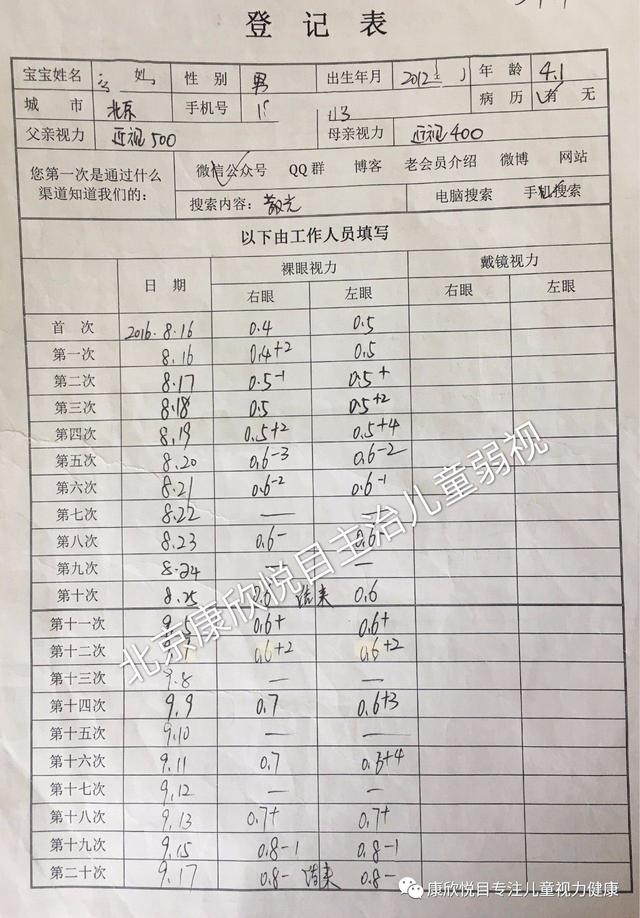 登记表
宝宝姓名 性别 男 出生年月 2012 年龄 4.1
城市 北京 手机号 病历 有 无
父亲视力 近视500 母亲视力 近视400
您第一次是通过什么渠道知道我们的： 微信公众号 QQ群 博客 老会员介绍 微博 网站
搜索内容：散光 电脑搜索 手机搜索
以下由工作人员填写
日期 裸眼视力 戴镜视力
右眼 左眼 右眼 左眼
首次 2016.8.16 0.4 0.5
第一次 8.16 0.4+2 0.5
第二次 8.17 0.5-1 0.5+
第三次 8.18 0.5 0.5+2
第四次 8.19 0.5+2 0.5+4
第五次 8.20 0.6-3 0.6-2
第六次 8.21 0.6-2 0.6-1
第七次 8.22 — —
第八次 8.23 0.6- 0.6
第九次 8.24 — —
第十次 8.25 0.6 结束 0.6
第十一次 0.6+ 0.6+
第十二次 0.6+2 0.6+2
第十三次 9.8 — —
第十四次 9.9 0.7 0.6+3
第十五次 9.10 — —
第十六次 9.11 0.7 +4
第十七次 9.12 — —
第十八次 9.13 0.7+ 0.7+
第十九次 9.15 0.8-1 0.8-1
第二十次 9.17 0.8- 结束 0.8-
北京康欣悦目主治儿童弱视
康欣悦目专注儿童视力健康